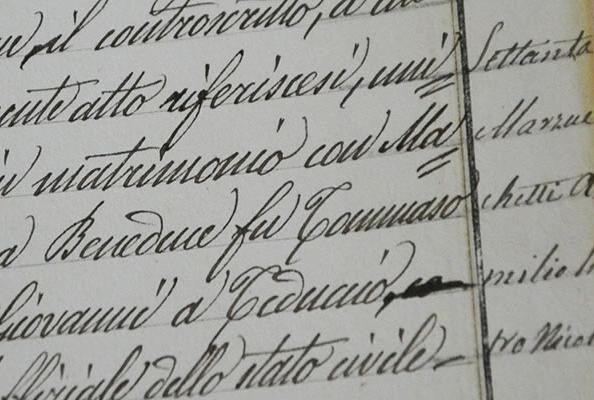 il controscritto, a
ente atto riferiscesi, uni=
in matrimonio con Ma=
a Benedece fu Tommaso
Giovanni a Teduccio,
ffiziale dello stato civile
Settanta
Marzue
chetti A
milio
tro Nico